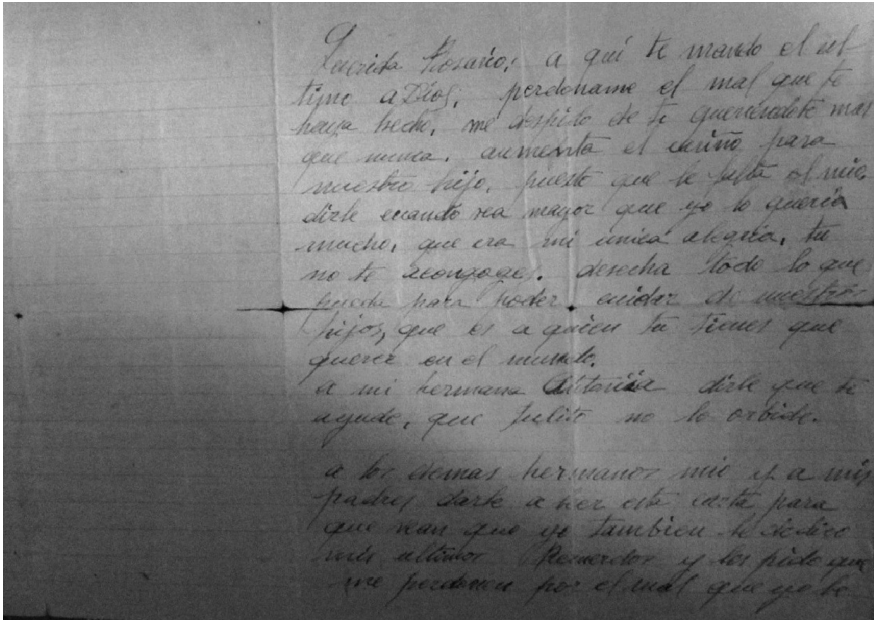 Querida Rosario; a qui te mando el ul
timo a Dios, perdoname el mal que te
haya hecho, me despido de ti queriendote mas
que nunca. aumenta el cariño para
nuestro hijo, puesto que le falta el mio,
dirle cuando sea mayor que yo lo queria
mucho, que era mi unica alegria, tu
no te acongoges. desecha todo lo que
pueda para poder cuidar de nuestros
hijos, que es a quien tu tienes que
querer en el mundo.
a mi hermana Antonia dirle que te
ayude, que Julito no lo orbide.
a los demas hermanos mio y a mis
padres darle a ver esta carta, para
que vean que yo tambien le dedico
mis ultimos Recuerdos y les pido que
me perdonen por el mal que yo le